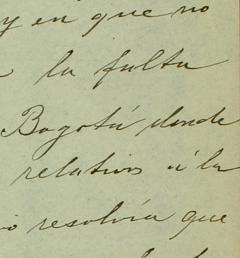 y en que no
la falta
Bogotá donde
relativo á la
resolvía que